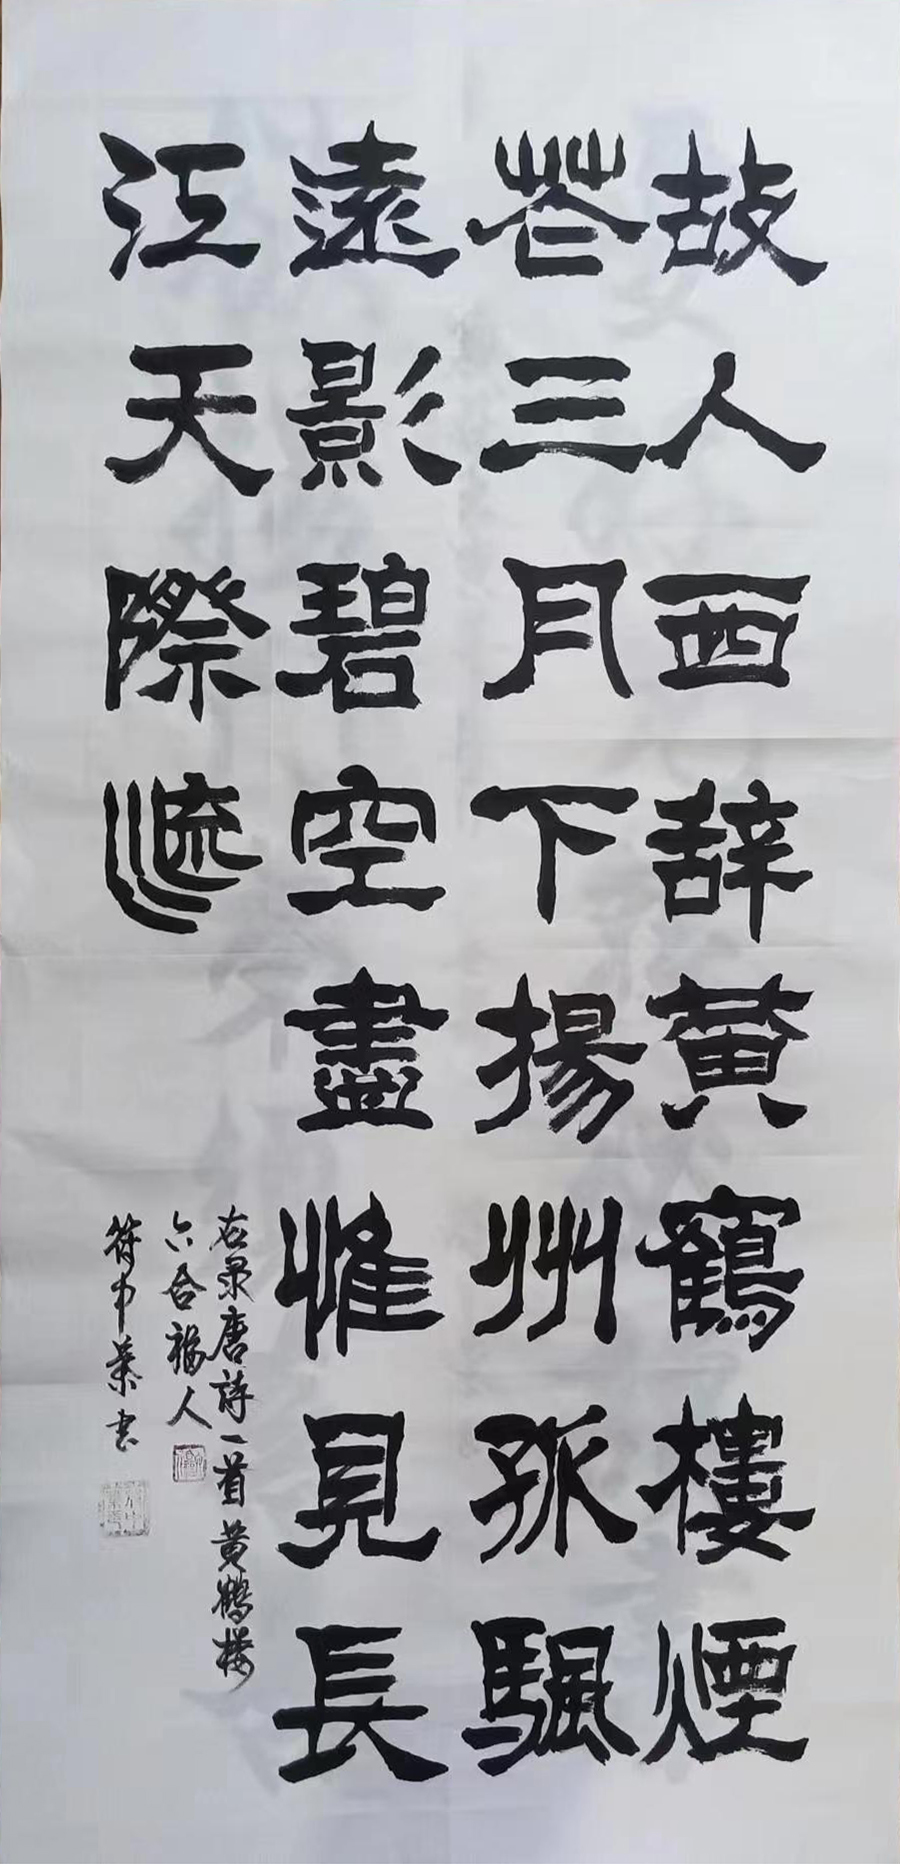 故人西辞黄鶴樓煙
花三月下揚州孤颿
遠影碧空盡惟見長
江天際流
右录唐詩一首黄鶴楼
六合福人
符中業书